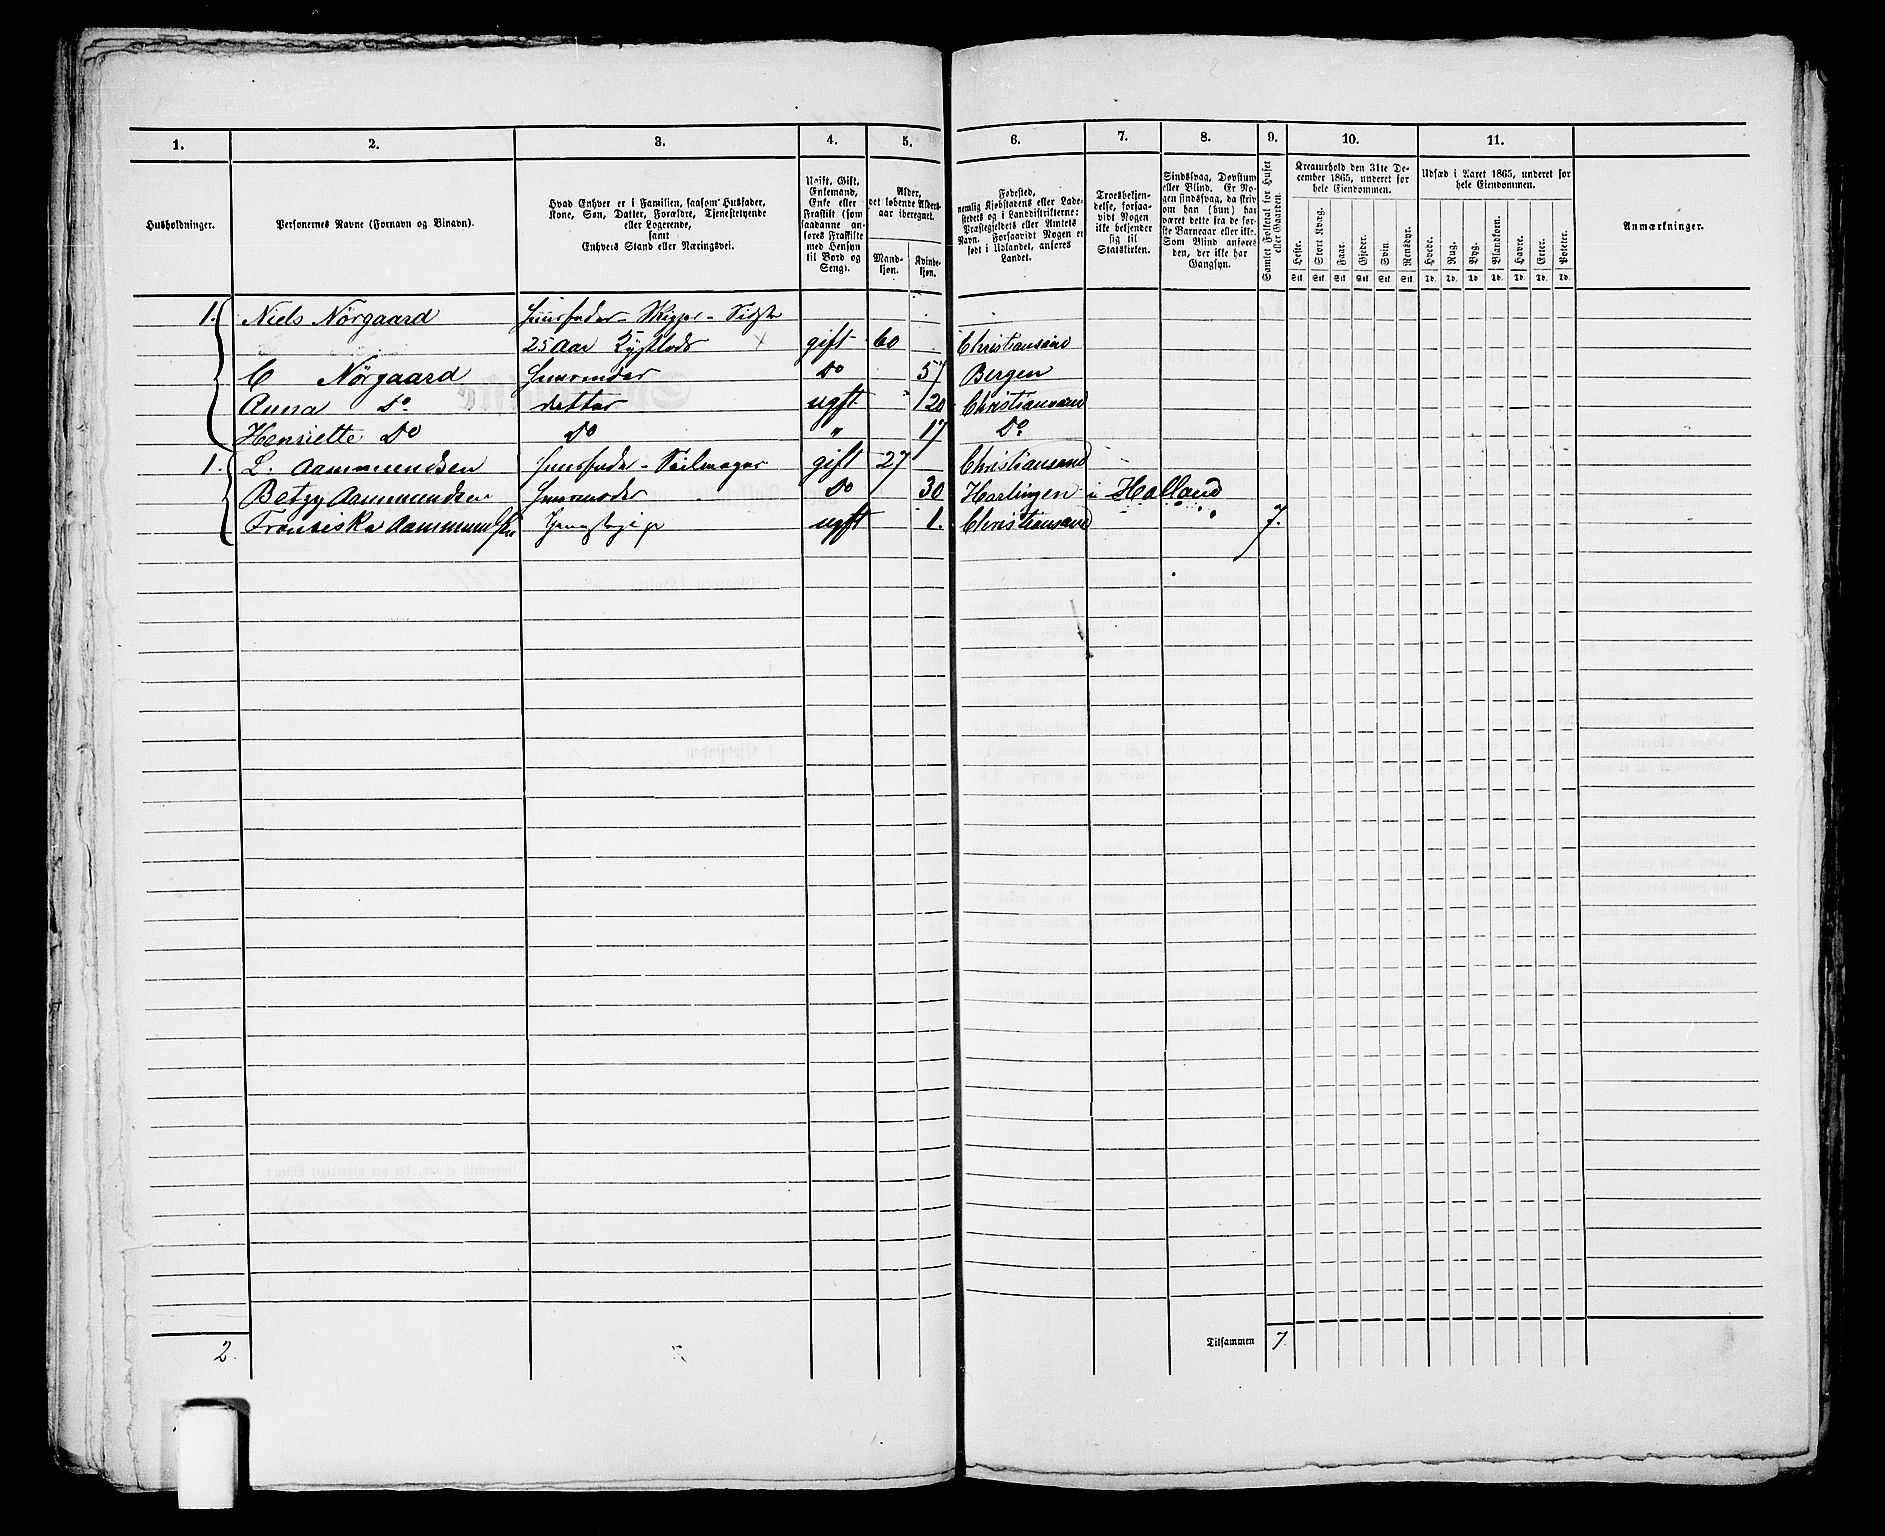 1. 2. 3. 4. 5. 6. 7. 8. 9. 10. 11.
Husholdninger.
Personernes Navne (Fornavn og Binavn).
Hvad Enhver er i Familien, saasom Husfader,
Kone, Søn, Datter, Forældre, Tjenestetyende
eller Logerende,
samt
Enhvers Stand eller Næringsvei.
Ugift, Gift,
Enkemand,
Enke eller
Fraskilt (som
saadanne an-
føres Fraskilte
med Hensyn
til Bord og
Seng).
Alder,
det løbende Alders-
aar iberegnet.
Mand-
kjøn.
Kvinde-
kjøn.
Fødested,
nemlig Kjøbstadens eller Lade-
stedets og i Landdistrikterne:
Præstegjeldets eller Amtets
Navn. Forsaavidt Nogen er
født i Udlandet, anføres
Landet.
Troesbekjen-
delse, forsaa-
vidt Nogen
ikke bekjender
sig til
Statskirken.
Sindssvag, Døvstum
eller Blind. Er No-
gen sindssvag, da skriv
om han (hun) har
været dette fra de før-
ste Barneaar eller ikke.
Som Blind anføres
den, der ikke har
Gangsyn.
Samlet Folketal for Huset
eller Gaarden.
Kreaturhold den 31te De-
cember 1865, underet for
hele Eiendommen.
Heste. Stort Kvæg. Faar. Gjeder. Svin. Rensdyr.
Stk. Stk. Stk. Stk. Stk. Stk.
Udsæd i Aaret 1865, underet for
hele Eiendommen.
Hvede. Rug. Byg. Blandkorn. Havre. Erter. Poteter.
Td. Td. Td. Td. Td. Td. Td.
Anmærkninger.
1. Niels Nørgaard Huusfader - Skipper - Sidste
25 Aar Kystlods × gift 60 Christiansand
C Nørgaard Do 57 Bergen
Anna Do datter ugft 20 Christiansand
Henriette Do Do " 17 Do
1. L. Aammundsen Huusfader - Seilmager gift 27 Christiansand
Betzy Aammundsen Huusmoder Do 30 Harlingen i Holland
Fransiska Aammundsen ugft 1. Christiansand " " 7.
2. Tilsammen 7.